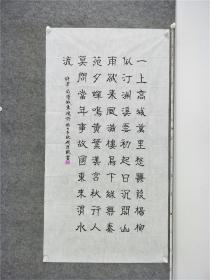 一上高城萬里愁蒹葭楊柳
似汀洲溪雲初起日沉閣山
雨欲來風滿樓鳥下綠蕪秦
苑夕蟬鳴黃葉漢宮秋行人
莫問當年事故國東來渭水
流